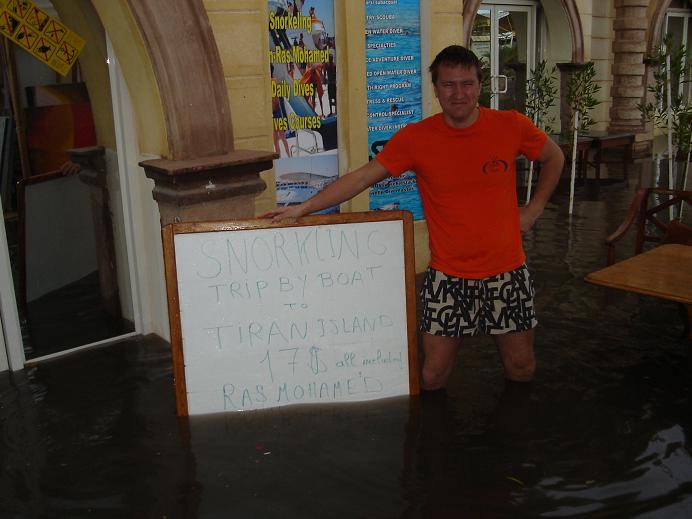 Snorkeling
n-Ras Mohamed
Daily Dives
ves Courses
TRY SCUBA
EN WATER DIVER
SPECIALTIES
CE ADVENTURE DIVER
ED OPEN WATER DIVER
TRESS & RESCUE
CONTROL SPECIALIST
SNORKLING
TRIP BY BOAT
TO
TIRAN ISLAND
17$ all included
RAS MOHAME'D